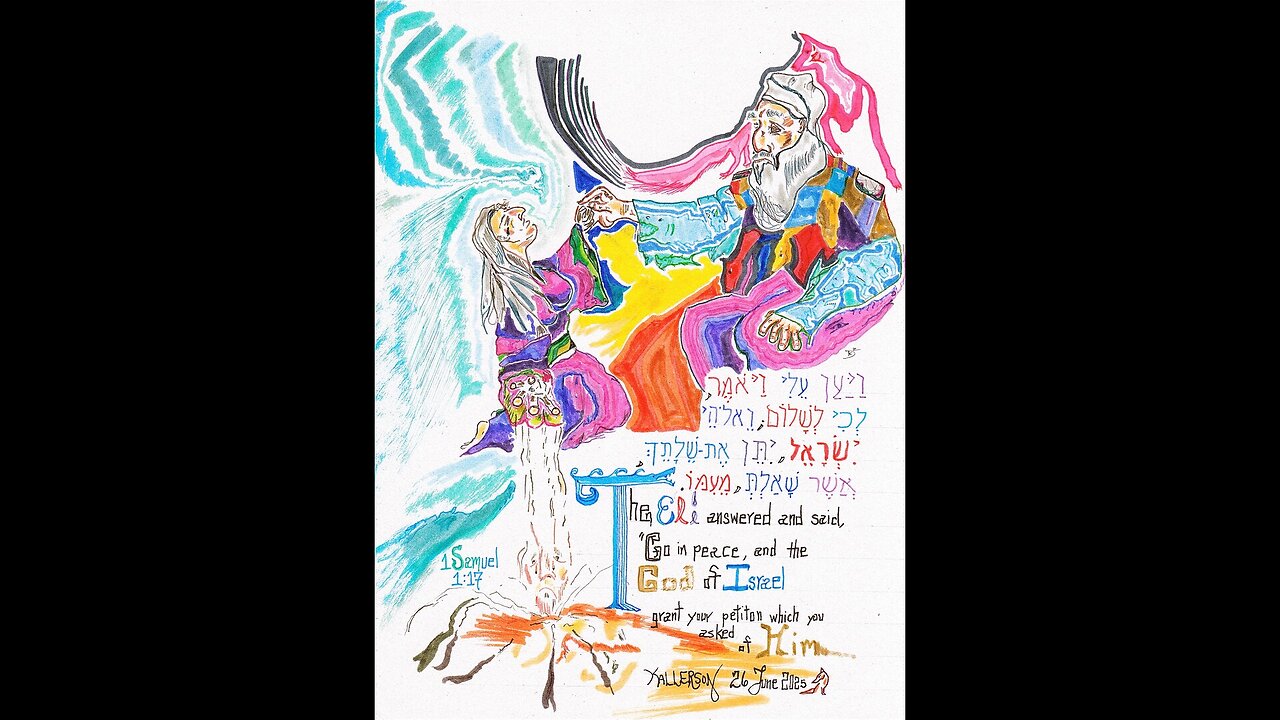 וַיַּעַן עֵלִי וַיֹּאמֶר,
לְכִי לְשָׁלוֹם, וֵאלֹהֵי
יִשְׂרָאֵל, יִתֵּן אֶת-שֵׁלָתֵךְ,
אֲשֶׁר שָׁאַלְתְּ, מֵעִמּוֹ.
Then Eli answered and said,
"Go in peace, and the
God of Israel
grant your petiton which you
asked
of Him
1 Samuel
1:17
YALLERSON 26 June 2025